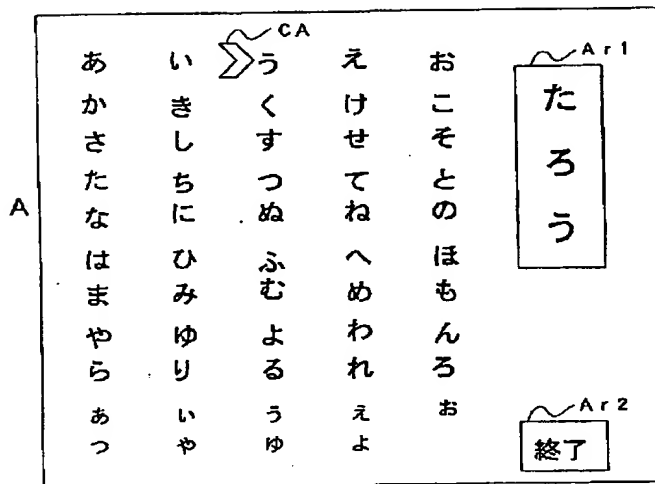 CA
あ い う え お
か き く け こ
さ し す せ そ
た ち つ て と
な に ぬ ね の
は ひ ふ へ ほ
ま み む め も
や ゆ よ わ ん
ら り る れ ろ
ぁ ぃ ぅ ぇ ぉ
っ ゃ ゅ ょ
A
Ar1
たろう
Ar2
終了